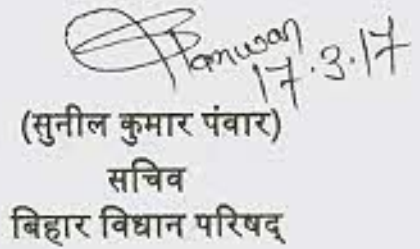 Panwan
17.3.17
(सुनील कुमार पंवार)
सचिव
बिहार विधान परिषद्